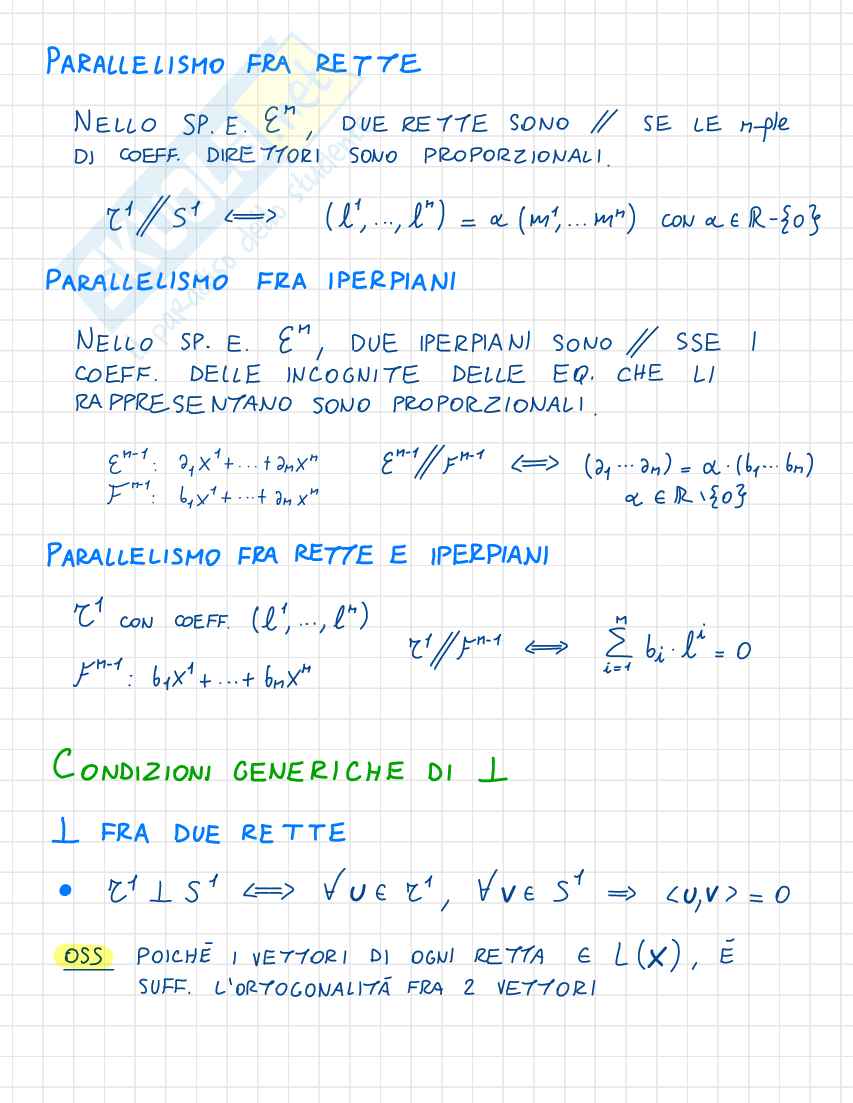 PARALLELISMO FRA RETTE
NELLO SP. E. Ɛⁿ, DUE RETTE SONO // SE LE n-ple
DI COEFF. DIRETTORI SONO PROPORZIONALI.
r¹ // S¹ ⟺ (l¹, ..., lⁿ) = α (m¹, ... mⁿ) CON α ∈ ℝ - {0}
PARALLELISMO FRA IPERPIANI
NELLO SP. E. Ɛⁿ, DUE IPERPIANI SONO // SSE I
COEFF. DELLE INCOGNITE DELLE EQ. CHE LI
RAPPRESENTANO SONO PROPORZIONALI.
Ɛⁿ⁻¹: a₁x¹ + ... + aₙxⁿ Ɛⁿ⁻¹ // Fⁿ⁻¹ ⟺ (a₁ ... aₙ) = α · (b₁ ... bₙ)
Fⁿ⁻¹: b₁x¹ + ... + aₙxⁿ α ∈ ℝ \ {0}
PARALLELISMO FRA RETTE E IPERPIANI
r¹ CON COEFF. (l¹, ..., lⁿ)
r¹ // Fⁿ⁻¹ ⟺ ∑ᵢ₌₁ⁿ bᵢ · lⁱ = 0
Fⁿ⁻¹: b₁x¹ + ... + bₙxⁿ
CONDIZIONI GENERICHE DI ⊥
⊥ FRA DUE RETTE
• r¹ ⊥ S¹ ⟺ ∀ u ∈ r¹, ∀ v ∈ S¹ ⇒ <u,v> = 0
OSS POICHÉ I VETTORI DI OGNI RETTA ∈ L(X), É
SUFF. L'ORTOGONALITÁ FRA 2 VETTORI
SKUOLA.net
il paradiso dello studente